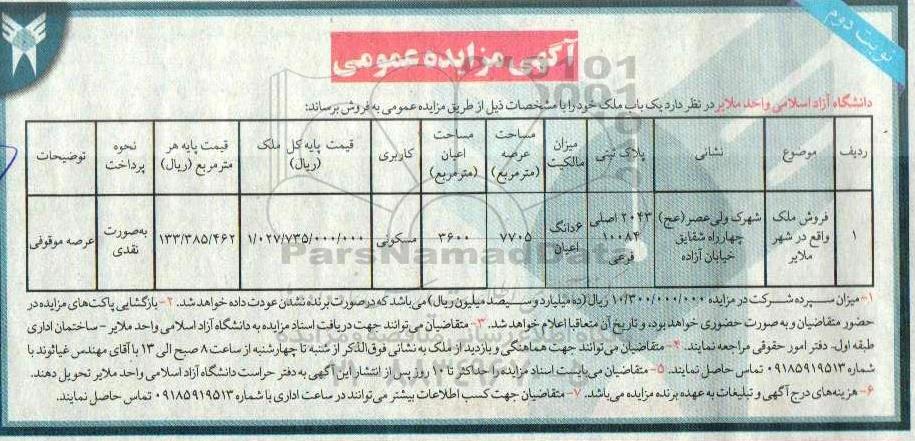 نوبت دوم
آگهی مزایده عمومی
دانشگاه آزاد اسلامی واحد ملایر در نظر دارد یک باب ملک خود را با مشخصات ذیل از طریق مزایده عمومی به فروش برساند:
ردیف	موضوع	نشانی	پلاک ثبتی	میزان مالکیت	مساحت عرصه (مترمربع)	مساحت اعیان (مترمربع)	کاربری	قیمت پایه کل ملک (ریال)	قیمت پایه هر مترمربع (ریال)	نحوه پرداخت	توضیحات
۱	فروش ملک واقع در شهر ملایر	شهرک ولی عصر (عج) چهارراه شقایق خیابان آزاده	۲۰۴۳ اصلی ۱۰۰۸۴ فرعی	۶دانگ اعیان	۷۷۰۵	۳۶۰۰	مسکونی	۱/۰۲۷/۷۳۵/۰۰۰/۰۰۰	۱۳۳/۳۸۵/۴۶۲	به‌صورت نقدی	عرصه موقوفی
۱- میزان سپرده شرکت در مزایده ۱۰/۳۰۰/۰۰۰/۰۰۰ ریال (ده میلیارد و سیصد میلیون ریال) می باشد که در صورت برنده نشدن عودت داده خواهد شد. ۲- بازگشایی پاکت های مزایده در
حضور متقاضیان و به صورت حضوری خواهد بود، و تاریخ آن متعاقبا اعلام خواهد شد. ۳- متقاضیان می توانند جهت دریافت اسناد مزایده به دانشگاه آزاد اسلامی واحد ملایر - ساختمان اداری
طبقه اول، دفتر امور حقوقی مراجعه نمایند. ۴- متقاضیان می توانند جهت هماهنگی و بازدید از ملک به نشانی فوق الذکر از شنبه تا چهارشنبه از ساعت ۸ صبح الی ۱۳ با آقای مهندس غیاثوند با
شماره ۰۹۱۸۵۹۱۹۵۱۳ تماس حاصل نمایند. ۵- متقاضیان می بایست اسناد مزایده را حداکثر تا ۱۰ روز پس از انتشار این آگهی به دفتر حراست دانشگاه آزاد اسلامی واحد ملایر تحویل دهند.
۶- هزینه های درج آگهی و تبلیغات به عهده برنده مزایده می باشد. ۷- متقاضیان جهت کسب اطلاعات بیشتر می توانند در ساعت اداری با شماره ۰۹۱۸۵۹۱۹۵۱۳ تماس حاصل نمایند.
ParsNamadData